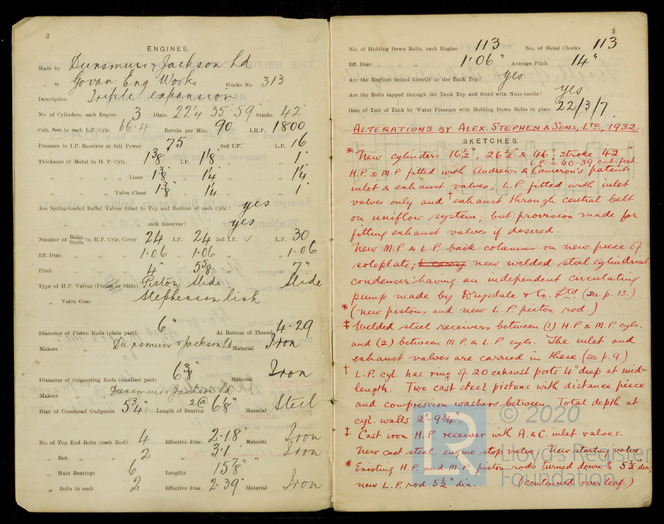 2
ENGINES.
Made by Dunsmuir & Jackson Ld
at Govan Eng Works Works No. 313
Description Triple expansion
No. of Cylinders, each Engine 3 Diars. 22¼ 35 59 Stroke 42"
Cub. feet in each L.P. Cylr. 66.4 Revols. per Min. 90 I.H.P. 1800
Pressure in I.P. Receiver at full Power 75 2nd I.P. L.P. 16
Thickness of Metal in H.P. Cylr. 1⅜ I.P. 1⅛ L.P. 1"
" " Liner 1⅜ " 1¼ " 1"
" " Valve Chest 1⅜ " 1¼ " 1"
Are Spring-loaded Relief Valves fitted to Top and Bottom of each Cylr.? yes
" " each Receiver? yes
Number of Bolts Studs in H.P. Cylr. Cover 24 I.P. 24 2nd I.P. L.P. 30
Eff. Diar. " " 1.06 " 1.06 " 1.06
Pitch " " 4 " 5⅝ " 7"
Type of H.P. Valves (Piston or Slide) Piston Slide Slide
" Valve Gear Stephenson link
Diameter of Piston Rods (plain part) 6" At Bottom of Thread 4.29
Makers " Dunsmuir & Jackson Ld Material Iron
Diameter of Connecting Rods (smallest part) 6⅜ Material Iron
Makers " Dunsmuir & Jackson Ld
Diar. of Crosshead Gudgeons 5¾ Length of Bearing 2 @ 6⅛" Material Steel
No. of Top End Bolts (each Rod) 4 Effective Diar. 2.18" Material Iron
" Bot. " 2 " 3.1" " Iron
" Main Bearings 6 Lengths 15⅜
" Bolts in each 2 Effective Diar. 2.39" Material Iron
3
No. of Holding Down Bolts, each Engine 113 No. of Metal Chocks 113
Eff. Diar. 1.06" Average Pitch 14"
Are the Engines bolted directly to the Tank Top? yes
Are the Bolts tapped through the Tank Top and fitted with Nuts inside? Yes
Date of Test of Tank by Water Pressure with Holding Down Bolts in place 22/3/7.
ALTERATIONS BY ALEX. STEPHEN & SONS, LTD, 1932.
SKETCHES.
* New cylinders 16½", 26½" & 46" stroke 42"
L.P. = 40.39 cub. feet.
H.P. & M.P fitted with Andrews & Cameron's patent
inlet & exhaust valves, L.P. fitted with inlet
valves only and † exhaust through central belt
on uniflow system, but provision made for
fitting exhaust valves if desired.
New M.P. & L.P. back columns on new piece of
soleplate, new welded steel cylindrical
condenser having an independent circulating
pump made by Drysdale & Co. Ltd (see p. 13.)
* (new pistons and new L.P. piston rod)
‡ Welded steel receivers between (1) H.P. & M.P. cyls.
and (2) between M.P. & L.P. cyls. The inlet and
exhaust valves are carried in these. (see p. 9)
† L.P. cyl. has ring of 20 exhaust ports 4" deep at mid-
length. Two cast steel pistons with distance piece
and compression washers between. Total depth at
cyl. walls 2'-9¾"
‡ Cast iron H.P. receiver with A. & C. inlet valves.
New cast steel engine stop valve. New starting valve
* Existing H.P. and M.P. piston rods turned down to 5½" dia,
new L.P. rod 5½" dia. (continued over leaf)
© 2020
Lloyd's Register
Foundation